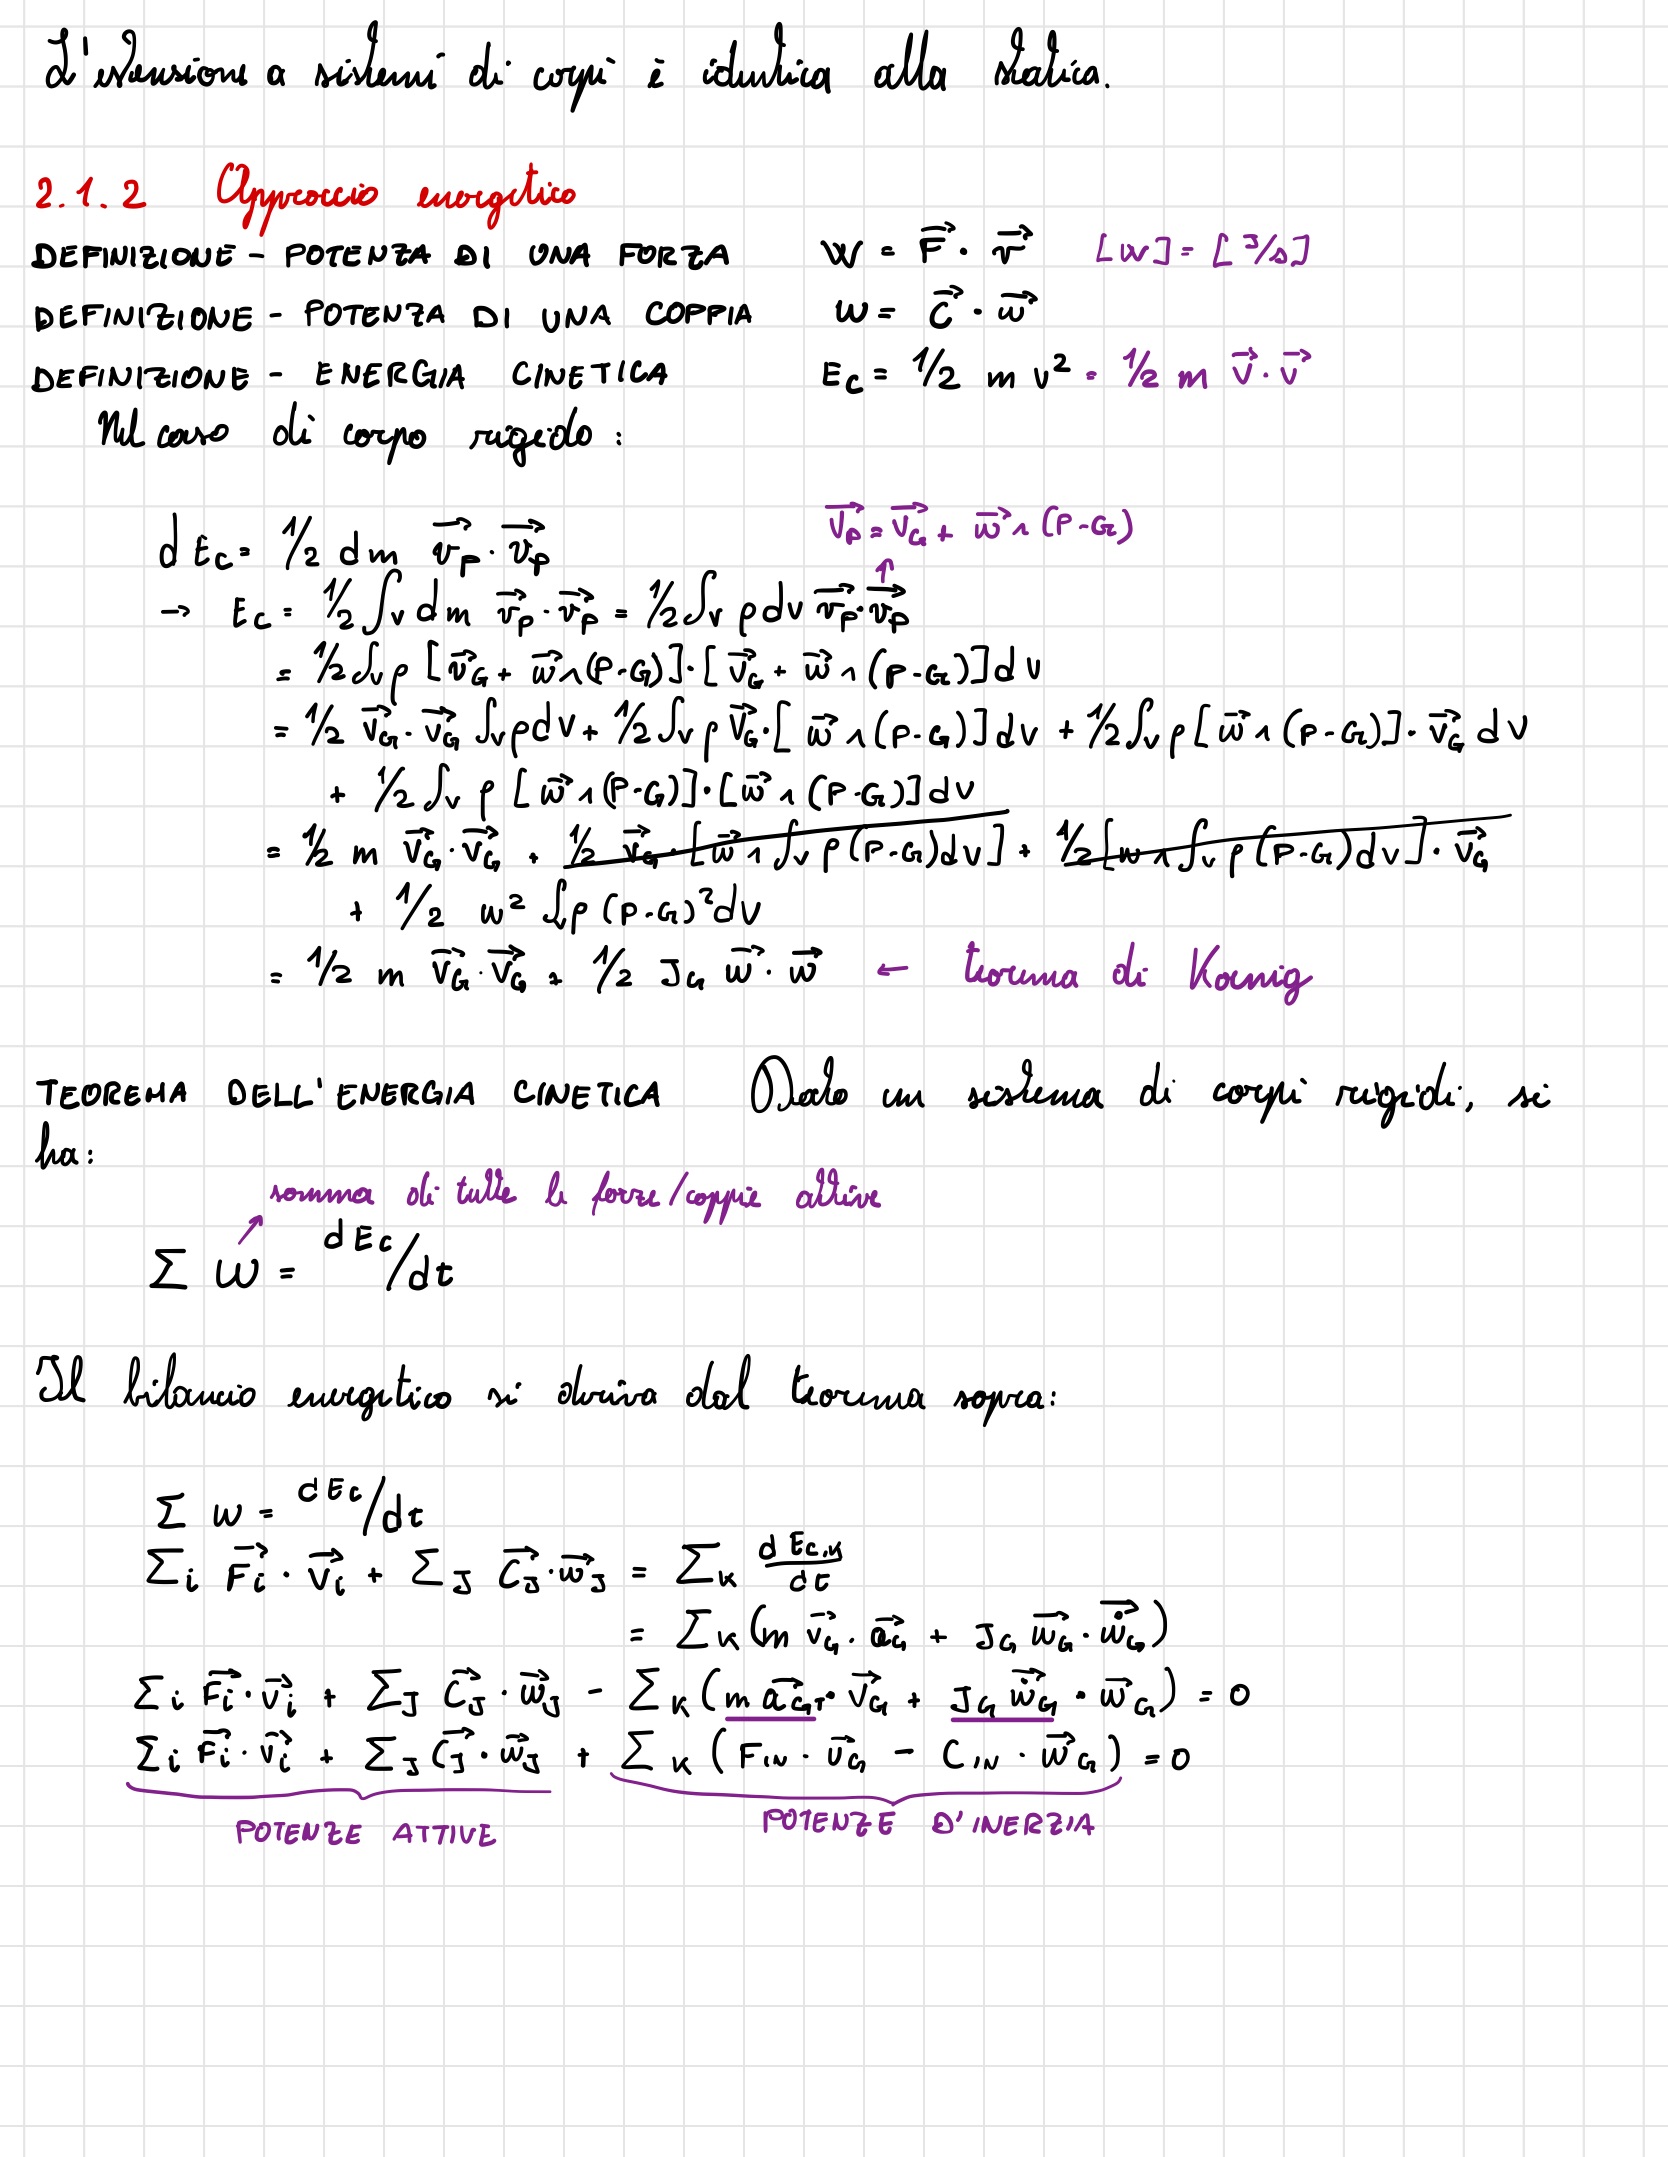 L'estensione a sistemi di corpi è identica alla statica.
2.1.2 Approccio energetico
DEFINIZIONE - POTENZA DI UNA FORZA W = F⃗ · v⃗ [W] = [J/s]
DEFINIZIONE - POTENZA DI UNA COPPIA W = C⃗ · ω⃗
DEFINIZIONE - ENERGIA CINETICA Ec = 1/2 m v² = 1/2 m v⃗ · v⃗
Nel caso di corpo rigido :
v⃗P = v⃗G + ω⃗ ∧ (P-G)
d Ec = 1/2 dm v⃗P · v⃗P
→ Ec = 1/2 ∫V dm v⃗P · v⃗P = 1/2 ∫V ρ dV v⃗P · v⃗P
= 1/2 ∫V ρ [v⃗G + ω⃗ ∧ (P-G)] · [v⃗G + ω⃗ ∧ (P-G)] dV
= 1/2 v⃗G · v⃗G ∫V ρ dV + 1/2 ∫V ρ v⃗G · [ω⃗ ∧ (P-G)] dV + 1/2 ∫V ρ [ω⃗ ∧ (P-G)] · v⃗G dV
+ 1/2 ∫V ρ [ω⃗ ∧ (P-G)] · [ω⃗ ∧ (P-G)] dV
= 1/2 m v⃗G · v⃗G + 1/2 v⃗G · [ω⃗ ∧ ∫V ρ (P-G) dV] + 1/2 [ω ∧ ∫V ρ (P-G) dV] · v⃗G
+ 1/2 ω² ∫ρ (P-G)² dV
= 1/2 m v⃗G · v⃗G + 1/2 JG ω⃗ · ω⃗ ← teorema di Koenig
TEOREMA DELL'ENERGIA CINETICA Dato un sistema di corpi rigidi, si
ha:
somma di tutte le forze/coppie attive
Σ W = dEc/dt
Il bilancio energetico si deriva dal teorema sopra:
Σ W = dEc/dt
Σi F⃗i · v⃗i + ΣJ C⃗J · ω⃗J = ΣK dEc,K/dt
= ΣK (m v⃗G · a⃗G + JG ω⃗G · ω̇⃗G)
Σi F⃗i · v⃗i + ΣJ C⃗J · ω⃗J - ΣK (m a⃗G · v⃗G + JG ω̇⃗G · ω⃗G) = 0
Σi F⃗i · v⃗i + ΣJ C⃗J · ω⃗J + ΣK (FIN · v⃗G - CIN · ω⃗G) = 0
POTENZE ATTIVE POTENZE D'INERZIA